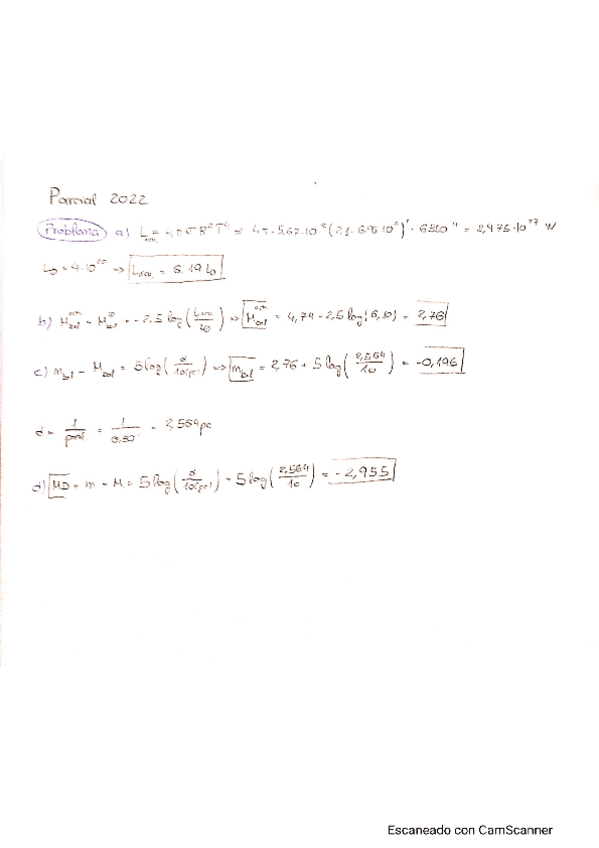 Parcial 2022
Problema a) L = 4πσR²T⁴ = 4π · 5,67·10 (2,1 · 6,96·10⁸)² · = 2,975·10²⁷ W
L☉ = 4·10²⁶ → L = 6,19 L☉
b) M bol - M☉ bol = -2.5 log ( / L☉) → M bol = 4,74 - 2,5 log(6,19) = 2,76
c) m bol - M bol = 5 log(d/10(pc)) → m bol = 2,76 + 5 log(2,564/10) = -0,195
d = 1/paral = 1/0,39 = 2,564 pc
d) MD = m - M = 5 log(d/10(pc)) = 5 log(2,564/10) = -2,955
Escaneado con CamScanner